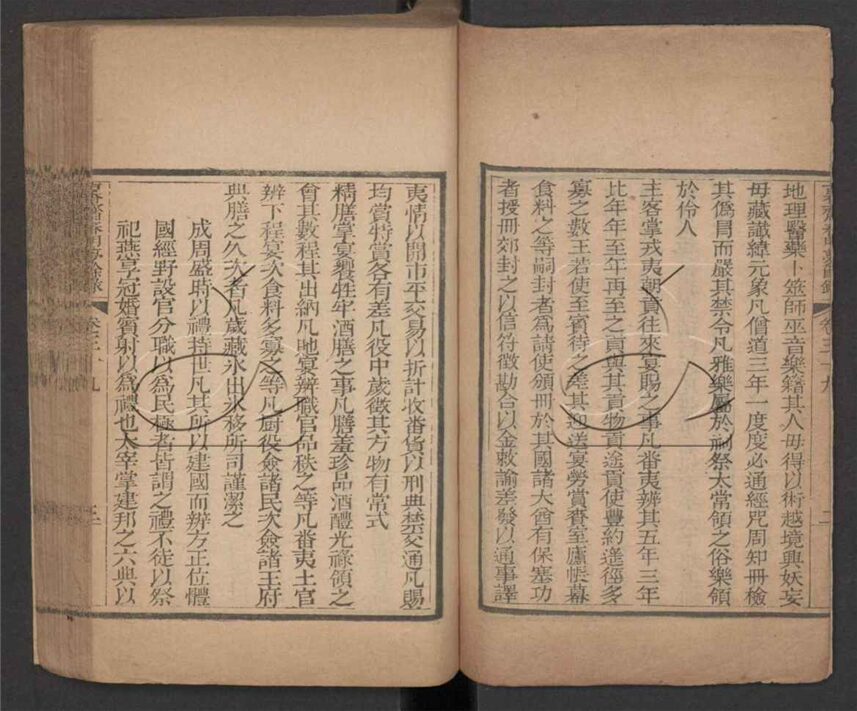 地理醫藥卜筮師巫音樂籍其人毋得以術越境與妖妄
毋藏讖緯元象凡僧道三年一度度必通經咒周知冊檢
其僞冒而嚴其禁令凡雅樂屬於祠祭太常領之俗樂領
於伶人
主客掌戎夷朝貢往來宴賜之事凡畨夷辨其五年三年
比年年至年再至之貢與其貢物貢途貢使豐約遠徑多
寡之數王若使至賓待之差其迎送宴勞賞賚至廬帳幕
食料之等嗣封者爲請使頒冊於其國諸大酋有保塞功
者授冊郊封之以信符徵勘合以金敕諭差發以通事譯
夷情以開市平交易以折計收畨貨以刑典禁交通凡賜
均賞特賞各有差凡役中歲徵其方物有常式
精膳掌宴饗牲牢酒膳之事凡膳羞珍品酒醴光祿領之
會其數程其出納凡吔宴辨職官品秩之等凡畨夷土官
辨下程宴次食料多寡之等凡厨役僉諸民次僉諸王府
典膳之久次者凡歲藏氷出氷移所司謹潔之
成周盛時以禮持世凡其所以建國而辨方正位體
國經野設官分職以爲民極者皆謂之禮不徒以祭
祀燕享冠婚賓射以爲禮也太宰掌建邦之六典以